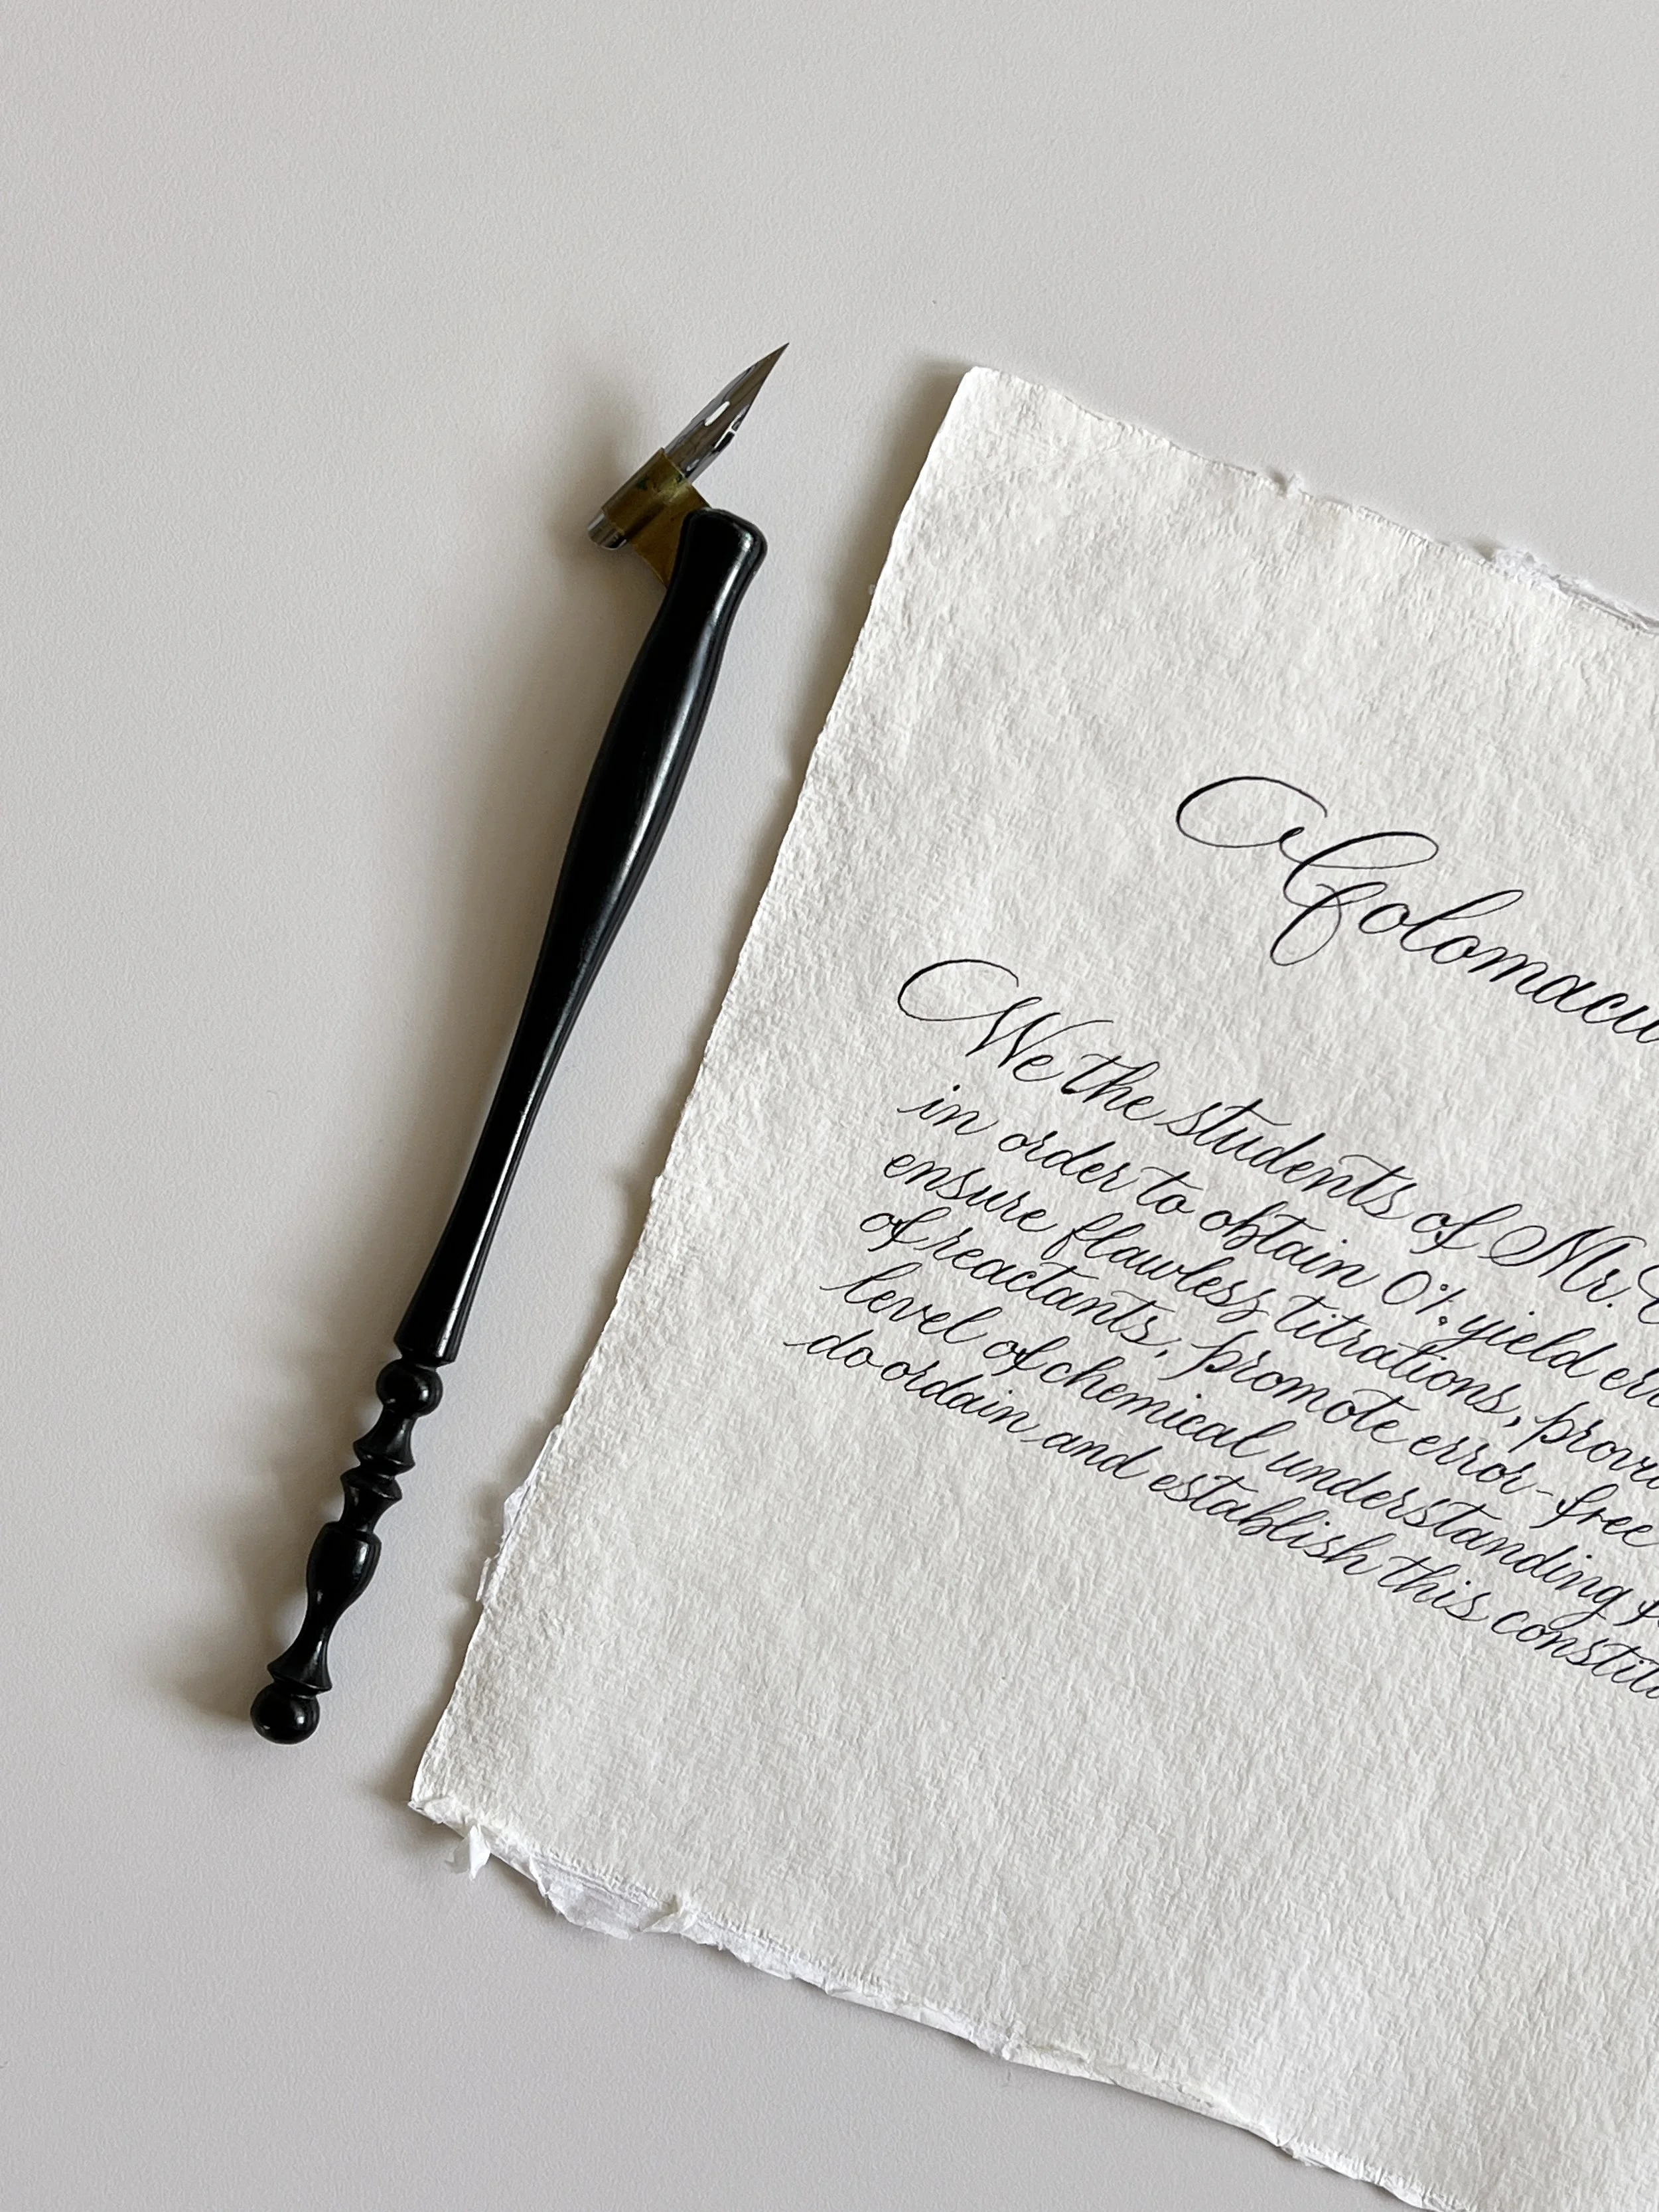 Colomacu
We the students of Mr.
in order to obtain 0% yield err
ensure flawless titrations, provi
of reactants, promote error-free
level of chemical understanding
do ordain and establish this constitu